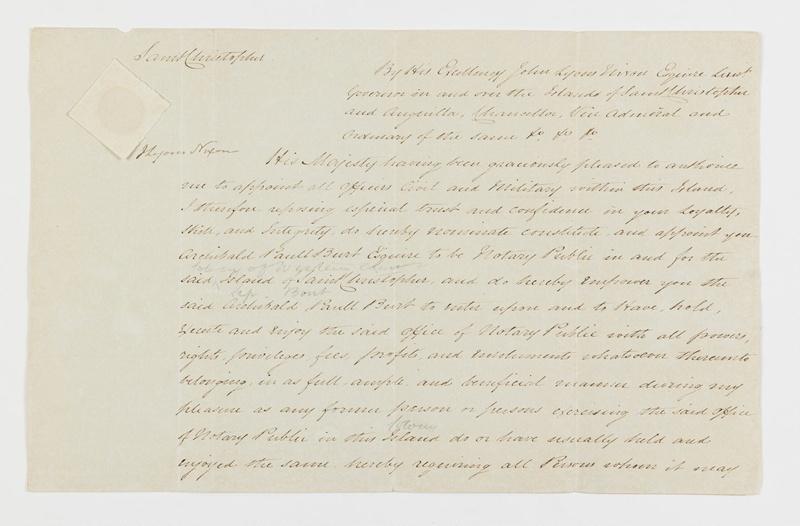 Saint Christopher
By His Excellency John Lyons Nixon Esquire Lieut
Governor in and over the Islands of Saint Christopher
and Anguilla, Chancellor, Vice Admiral and
Ordinary of the same &c. &c. &c.
J Lyons Nixon
His Majesty having been graciously pleased to authorize
me to appoint all officers Civil and Military within this Island,
I therefore reposing especial trust and confidence in your Loyalty,
Skill, and Integrity, do hereby nominate constitute and appoint you
Archibald Paull Burt Esquire to be Notary Public in and for the
of Western
said Island of Saint Christopher, and do hereby empower you the
said Archibald Paull Burt to enter upon and to Have, hold,
execute and enjoy the said office of Notary Public with all powers,
rights, privileges, fees, profits, and emoluments whatsoever thereunto
belonging, in as full, ample, and beneficial manner during my
pleasure as any former person or persons exercising the said office
of Notary Public in this Island do or have usually held and
enjoyed the same hereby requiring all Persons whom it may